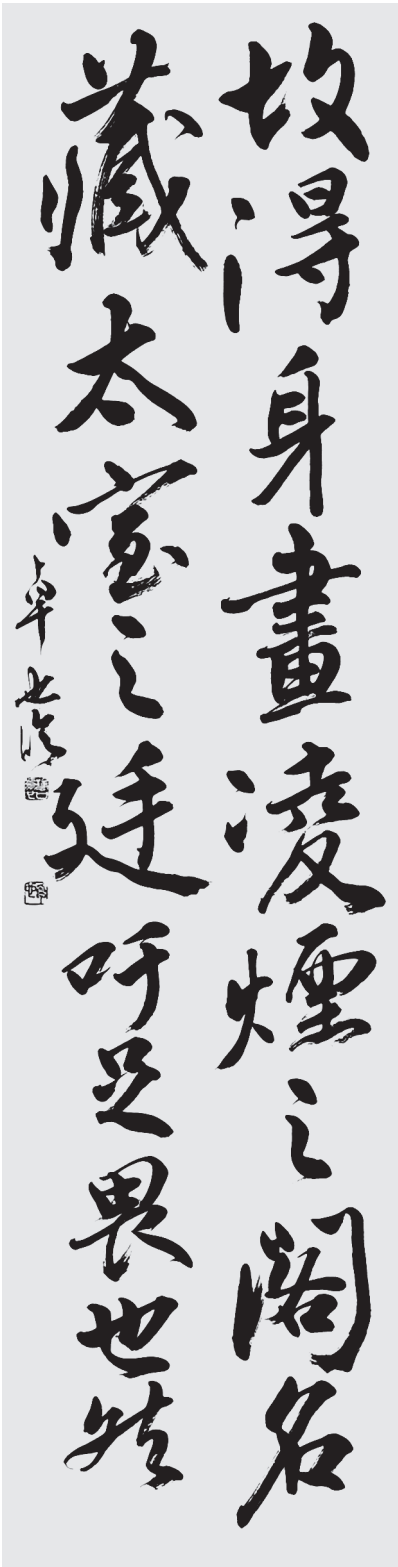 故得身畫凌煙之閣名
藏太室之廷吁足畏也然
卓